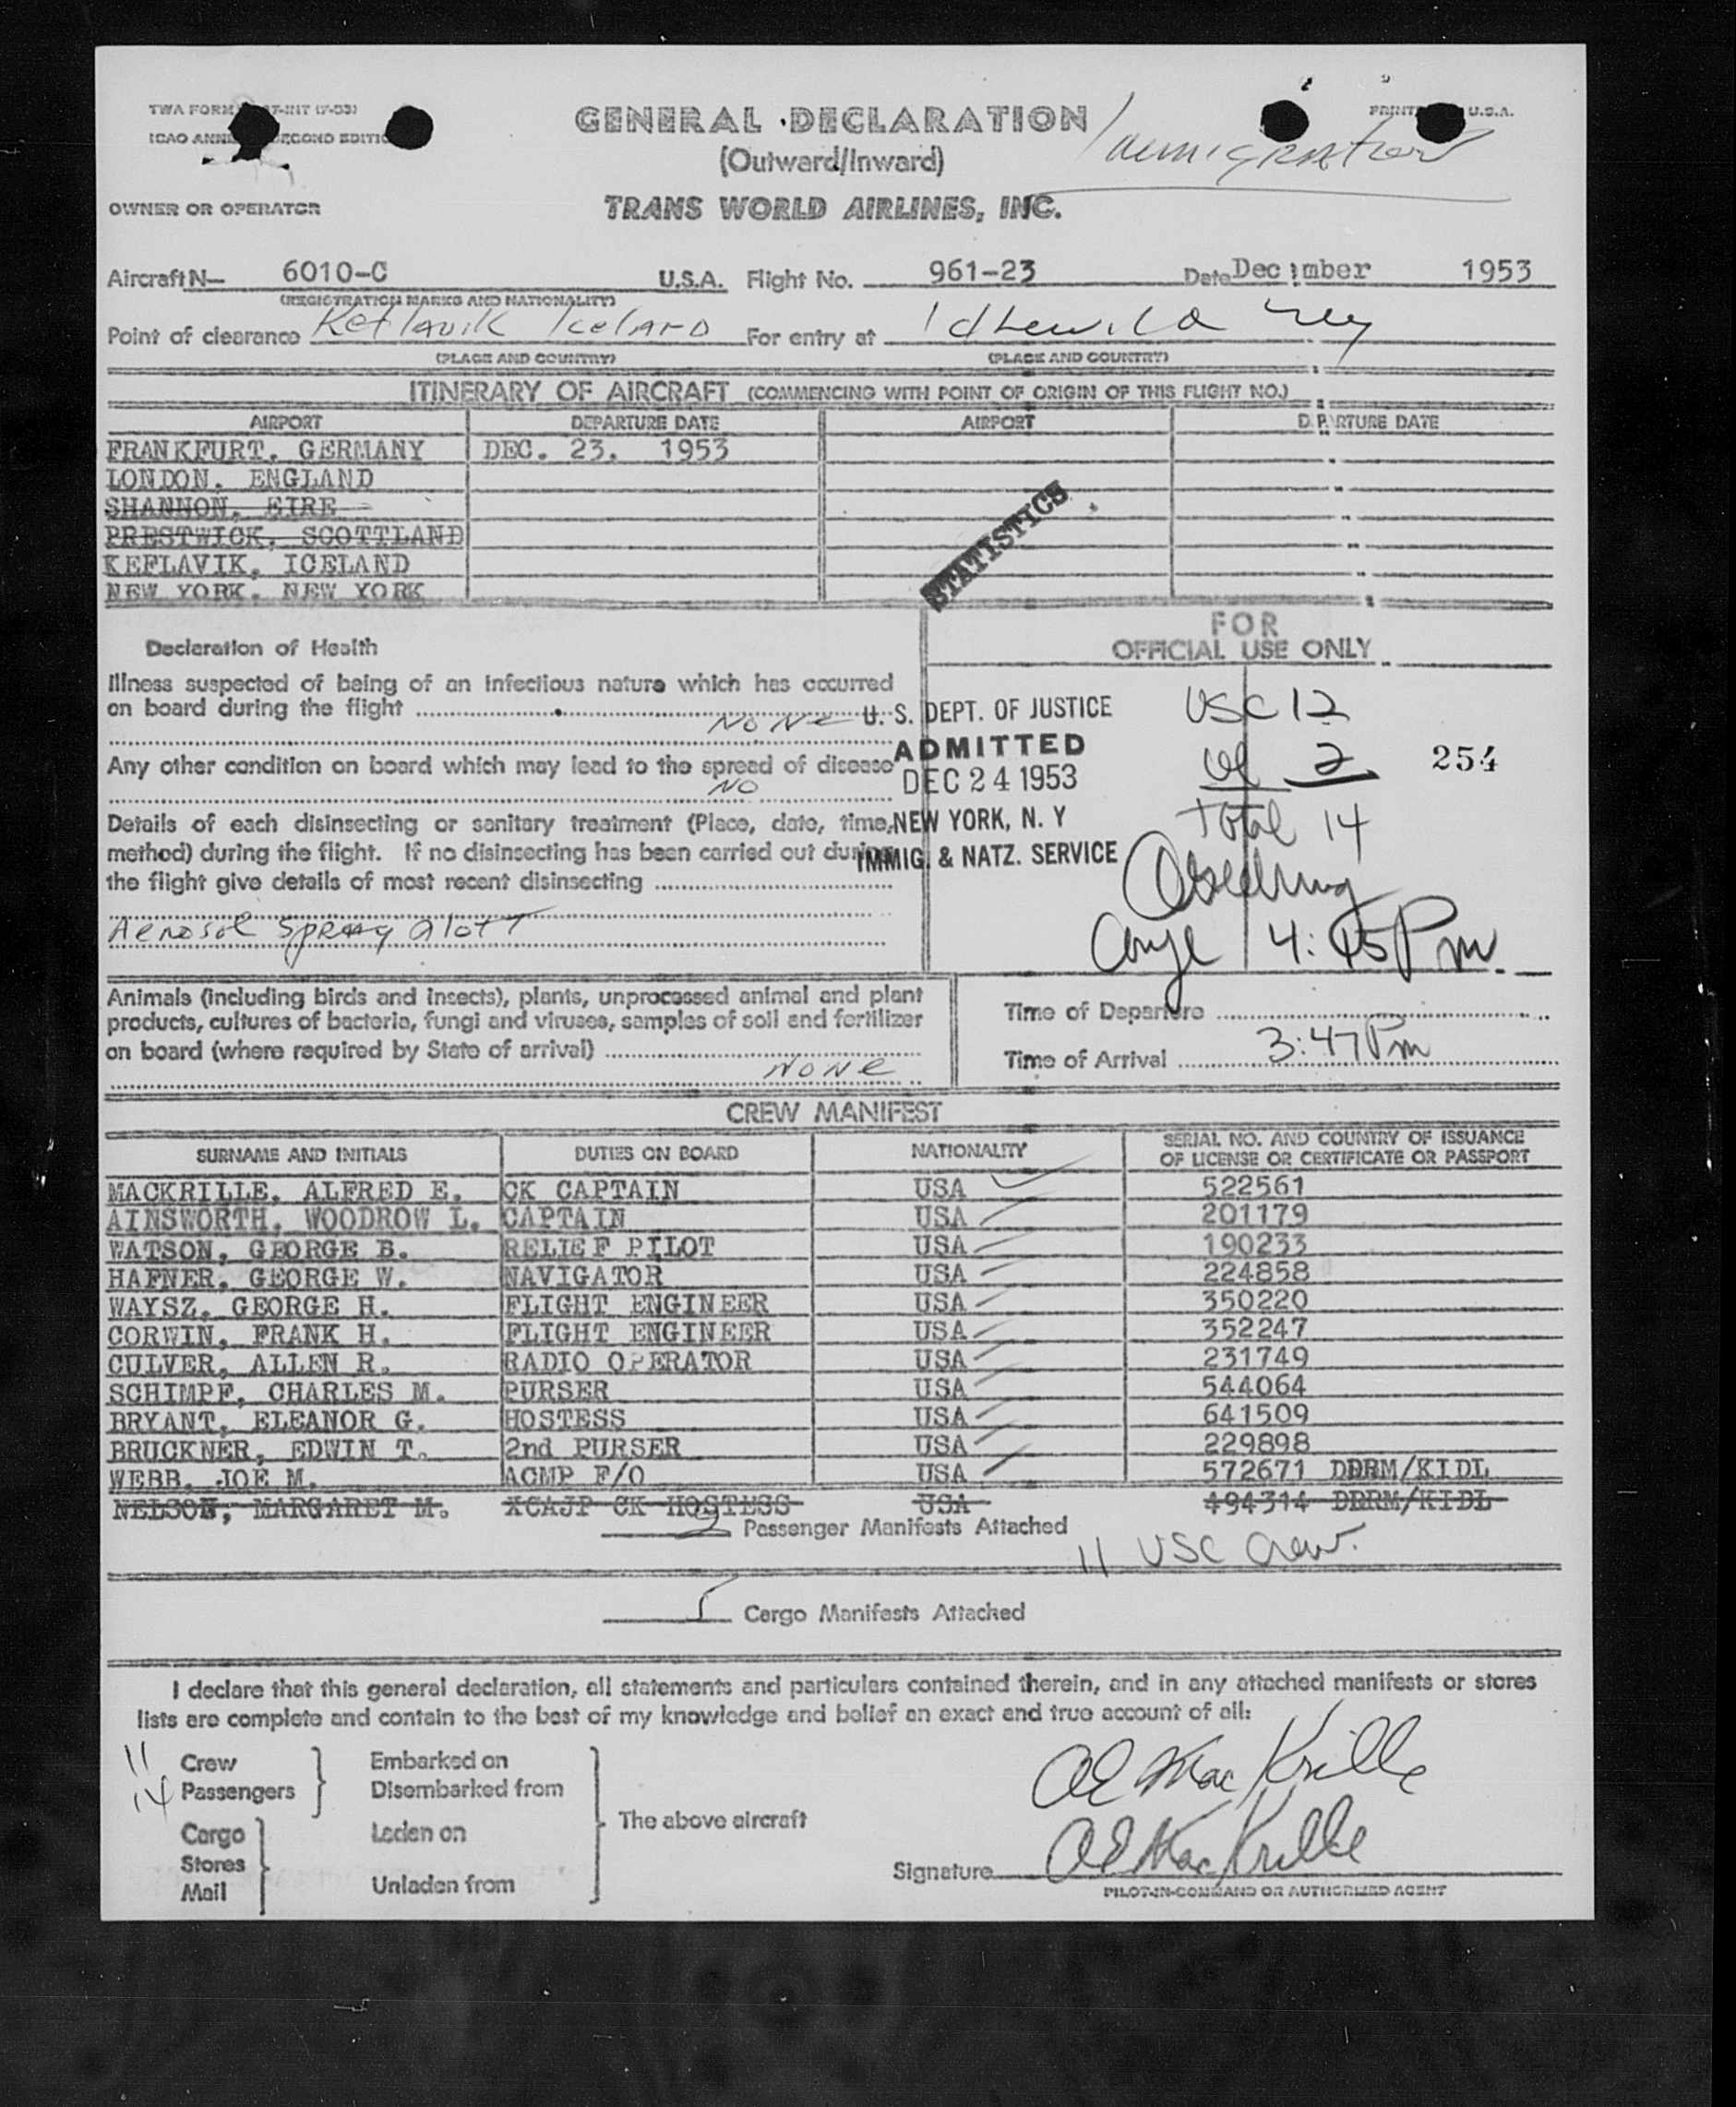 TWA FORM 7-INT (7-53)
PRINT U.S.A.
ICAO ANNE SECOND EDITIO
GENERAL DECLARATION
(Outward/Inward)
Immigration
OWNER OR OPERATOR
TRANS WORLD AIRLINES, INC.
Aircraft N— 6010-C U.S.A. Flight No. 961-23 Date December 1953
(REGISTRATION MARKS AND NATIONALITY)
Point of clearance Keflavik Iceland For entry at Idlewild
(PLACE AND COUNTRY) (PLACE AND COUNTRY)
ITINERARY OF AIRCRAFT (COMMENCING WITH POINT OF ORIGIN OF THIS FLIGHT NO.)
AIRPORT DEPARTURE DATE AIRPORT DEPARTURE DATE
FRANKFURT, GERMANY DEC. 23, 1953
LONDON, ENGLAND
SHANNON, EIRE
PRESTWICK, SCOTTLAND
KEFLAVIK, ICELAND
NEW YORK, NEW YORK
STATISTICS
Declaration of Health
Illness suspected of being of an infectious nature which has occurred
on board during the flight
NONE
Any other condition on board which may lead to the spread of disease
NO
Details of each disinsecting or sanitary treatment (Place, date, time,
method) during the flight. If no disinsecting has been carried out during
the flight give details of most recent disinsecting
Aerosol Spray Aloft
FOR
OFFICIAL USE ONLY
U. S. DEPT. OF JUSTICE
ADMITTED
DEC 24 1953
NEW YORK, N. Y
IMMIG. & NATZ. SERVICE
USC 12
2
254
Total 14
4:45 Pm.
Animals (including birds and insects), plants, unprocessed animal and plant
products, cultures of bacteria, fungi and viruses, samples of soil and fertilizer
on board (where required by State of arrival)
NONE
Time of Departure
Time of Arrival 3:47 Pm
CREW MANIFEST
SURNAME AND INITIALS DUTIES ON BOARD NATIONALITY SERIAL NO. AND COUNTRY OF ISSUANCE
OF LICENSE OR CERTIFICATE OR PASSPORT
MACKRILLE, ALFRED E. CK CAPTAIN USA 522561
AINSWORTH, WOODROW L. CAPTAIN USA 201179
WATSON, GEORGE B. RELIEF PILOT USA 190233
HAFNER, GEORGE W. NAVIGATOR USA 224858
WAYSZ, GEORGE H. FLIGHT ENGINEER USA 350220
CORWIN, FRANK H. FLIGHT ENGINEER USA 352247
CULVER, ALLEN R. RADIO OPERATOR USA 231749
SCHIMPF, CHARLES M. PURSER USA 544064
BRYANT, ELEANOR G. HOSTESS USA 641509
BRUCKNER, EDWIN T. 2nd PURSER USA 229898
WEBB, JOE M. ACMP F/O USA 572671 DDRM/KIDL
NELSON, MARGARET M. XCAJP CK HOSTESS USA 494314 DDRM/KIDL
2 Passenger Manifests Attached
11 USC Crew.
5 Cargo Manifests Attached
I declare that this general declaration, all statements and particulars contained therein, and in any attached manifests or stores
lists are complete and contain to the best of my knowledge and belief an exact and true account of all:
11 Crew
14 Passengers
Embarked on
Disembarked from
Cargo
Stores
Mail
Laden on
Unladen from
The above aircraft
AE MacKrille
Signature AE MacKrille
PILOT-IN-COMMAND OR AUTHORIZED AGENT